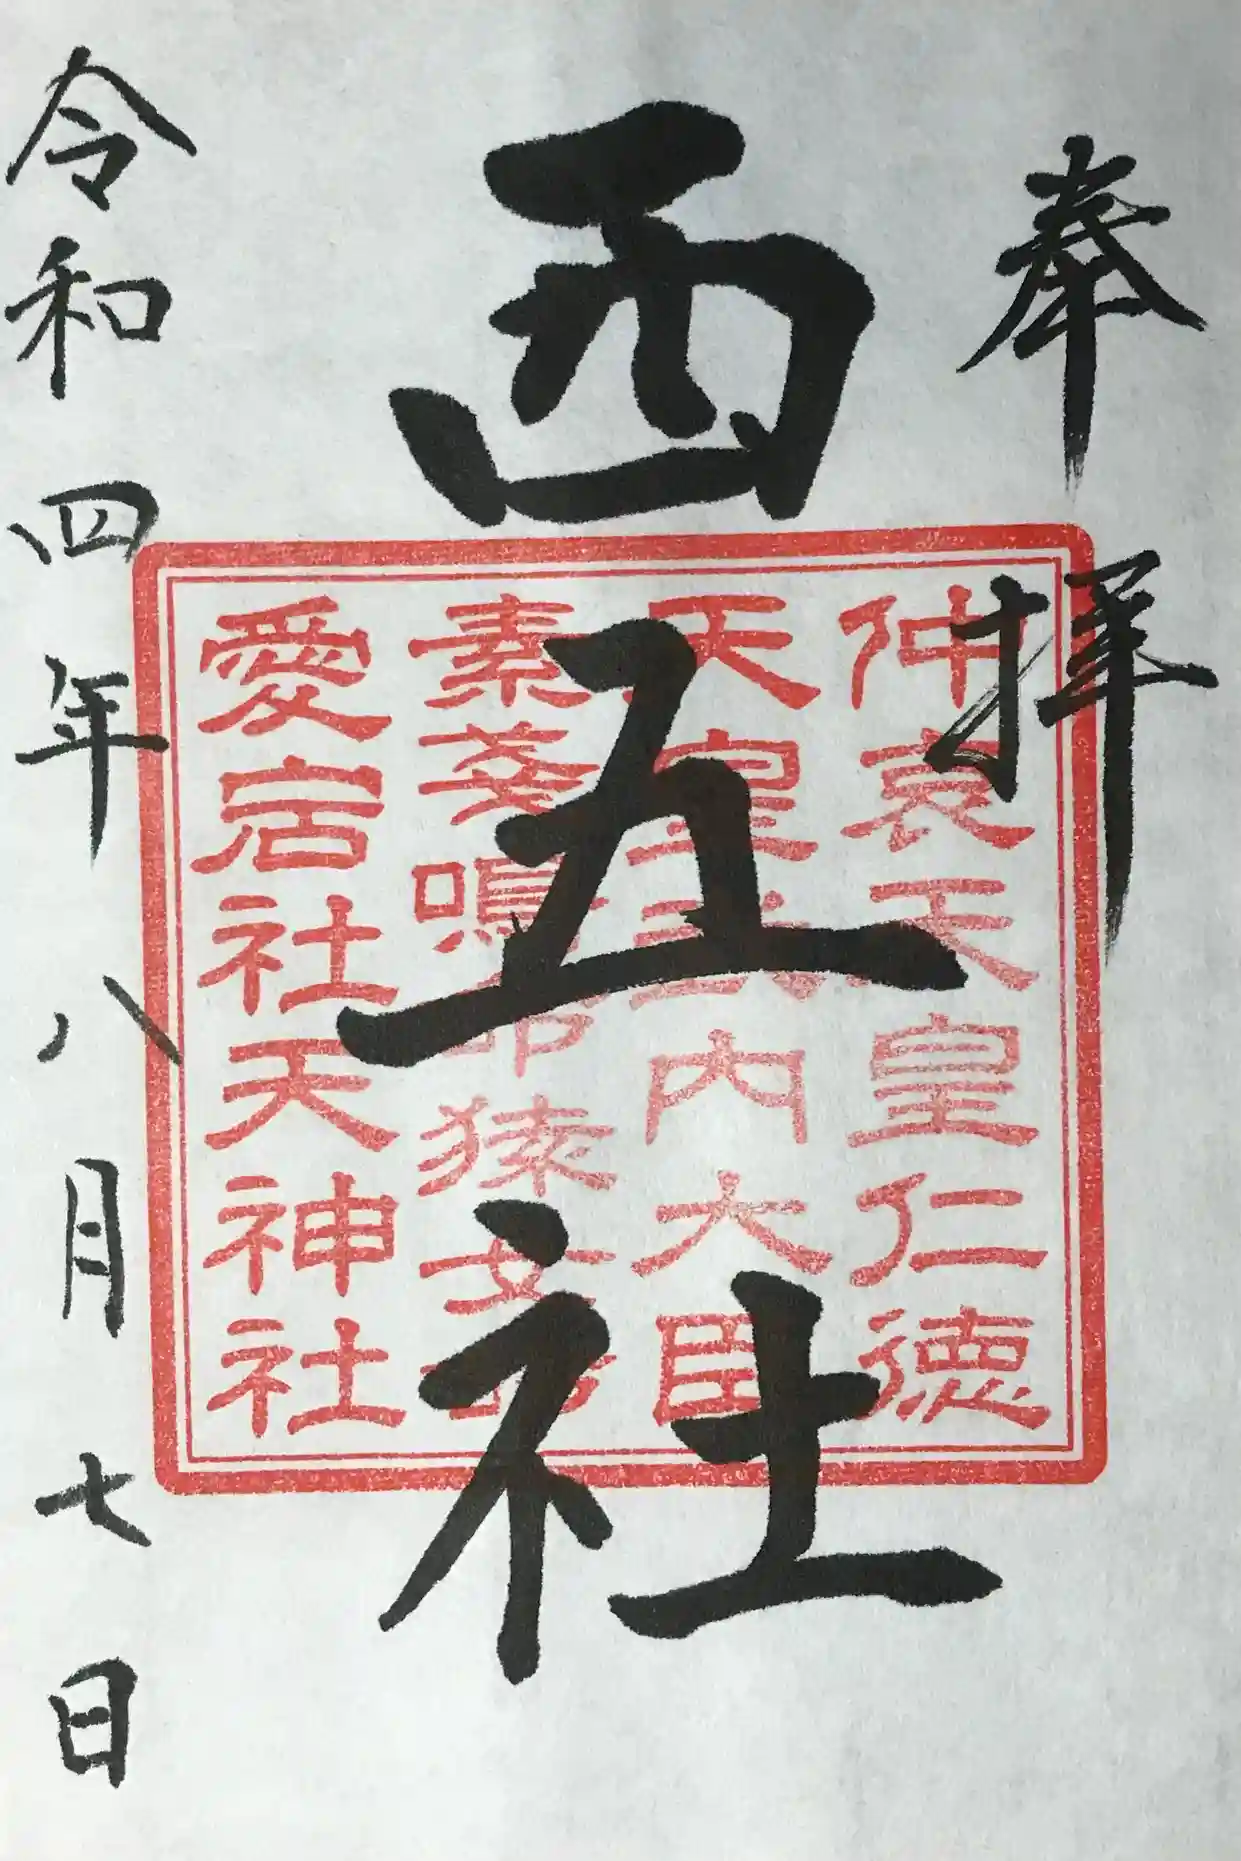 奉拝
西五社
仲哀天皇仁徳
天皇武内大臣
素戔鳴命猿女
愛宕社天神社
令和四年八月七日